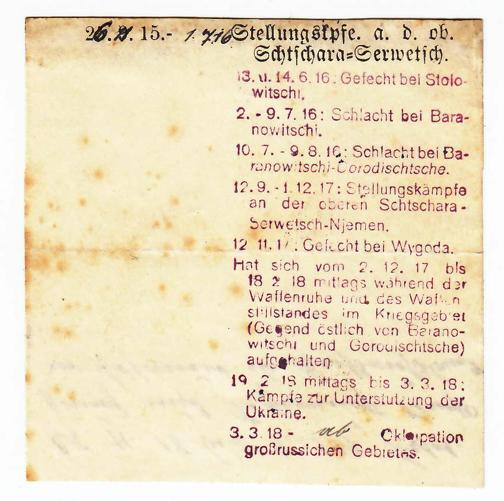 26. 9. 15.- 1. 7. 16 Stellungskpfe. a. d. ob.
Schtschara-Serwetsch.
13. u. 14. 6. 16: Gefecht bei Stolo-
witschi.
2. - 9. 7. 16: Schlacht bei Bara-
nowitschi.
10. 7. - 9. 8. 16: Schlacht bei Ba-
ranowitschi-Gorodischtsche.
12. 9. - 1. 12. 17: Stellungskämpfe
an der oberen Schtschara-
Serwetsch-Njemen.
12. 11. 17: Gefecht bei Wygoda.
Hat sich vom 2. 12. 17 bis
18. 2. 18 mittags während der
Waffenruhe und des Waffen-
stillstandes im Kriegsgebiet
(Gegend östlich von Barano-
witschi und Gorodischtsche)
aufgehalten
19. 2. 18 mittags bis 3. 3. 18:
Kämpfe zur Unterstutzung der
Ukraine.
3. 3. 18 - ab Okkupation
großrussichen Gebietes.